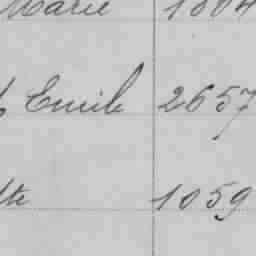 Marie 1004
Emile 2657
tte 1059